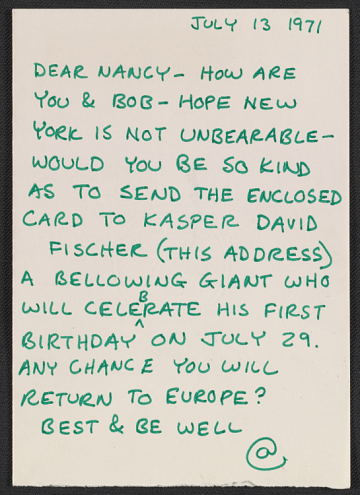 JULY 13 1971
DEAR NANCY- HOW ARE
YOU & BOB- HOPE NEW
YORK IS NOT UNBEARABLE-
WOULD YOU BE SO KIND
AS TO SEND THE ENCLOSED
CARD TO KASPER DAVID
FISCHER (THIS ADDRESS)
A BELLOWING GIANT WHO
WILL CELEBRATE HIS FIRST
BIRTHDAY ON JULY 29.
ANY CHANCE YOU WILL
RETURN TO EUROPE?
BEST & BE WELL
@